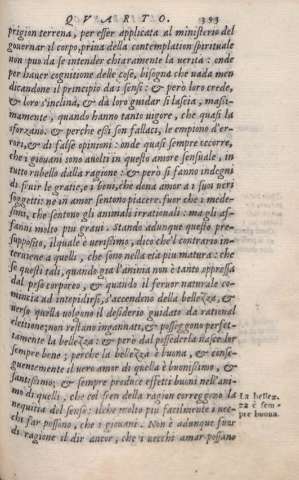 QVARTO. 393
prigion terrena, per esser applicata al ministerio del
gouernar il corpo, priua della contemplation spirituale
non può da se intender chiaramente la uerità: onde
per hauer cognitione delle cose, bisogna che uada men
dicandone il principio da i sensi: & però loro crede,
& loro s'inclina, & da loro guidar si lascia, massi-
mamente, quando hanno tanto uigore, che quasi la
sforzano. & perche essi son fallaci, le empiono d'er-
rori, & di false opinioni: onde quasi sempre occorre,
che i giouani sono auolti in questo amore sensuale, in
tutto rubello dalla ragione: & però si fanno indegni
di fruir le gratie, e i beni, che dona amor a i suoi ueri
soggetti: ne in amor sentono piacere. fuor che i mede-
simi, che sentono gli animali irrationali: ma gli af-
fanni molto piu graui. Stando adunque questo pre-
supposito, ilquale è uerissimo, dico che'l contrario in-
teruiene a quelli, che sono nella età piu matura: che
se questi tali, quando già l'anima non è tanto appressa
dal peso corporeo, & quando il feruor naturale co-
mincia ad intepidirsi, s'accendeno della bellezza, &
uerso quella uolgono il desiderio guidato da rational
elettione; non restano ingannati, & posseggono perfet-
tamente la bellezza: & però dal possederla nasce lor
sempre bene; perche la bellezza è buona, & conse-
guentemente il uero amor di quella è buonissimo, &
santissimo; & sempre produce effetti buoni nell'ani-
mo di quelli, che col fren della ragion correggono la
nequitia del senso: ilche molto piu facilmente i uec-
chi far possono, che i giouani. Non è adunque fuor
di ragione il dir ancor, che i uecchi amar possano
La bellez-
za è sem
pre buona.